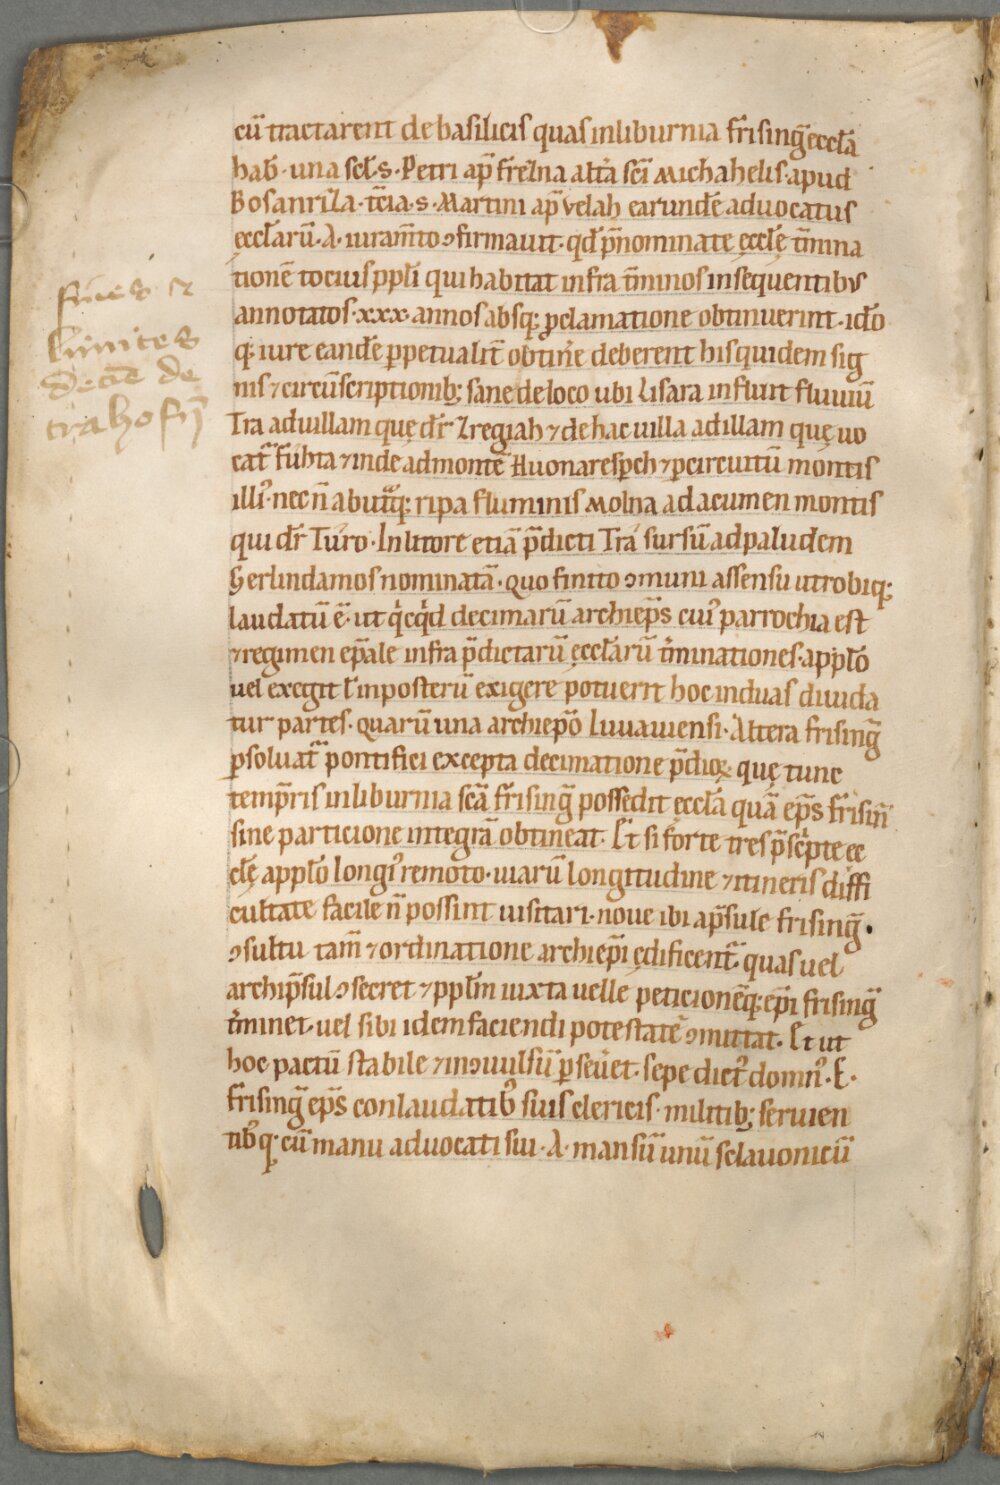 fines et
limites
decie de
trahofñ
cū tractarent de basilicis quas inliburnia frīsinḡ ecclā
hab̄· una scl̄·s· Petri ap̄ frełna alt̄a scī Michahelis· apud
Bosanrila· t̄cia·s· Martini ap̄ velah earundē advocatus
ęccl̄arū·A· iuram̄to ꝯfirmavit· qd̄ p̄nominate ęccl̄ę t̄mina
tionē tocius ppl̄i qui habitat infra t̄minos insequentibus
annotatos·xxx· annos absq; ꝓclamatione obtinuerint· idō
q; iure eandē ꝑpetualit̄ obtiner̄e deberent his quidem sig
nis ⁊ circūscriptionib; sane de loco ubi Lisara influit fluviū
Tra ad villam quę dr̄ Zregiah ⁊ de hac villa ad illam quę vo
cat̄ fūhta ⁊ inde ad montē Huonaresperch ⁊ ꝑ circuitū montis
illi᾽· nec n̄ ab utᵃq; ripa fluminis Molna ad acumen montis
qui dr̄ Turo· In litore etiā p̄dicti Tra sursū ad paludem
Gerlindamos nominatā· Quo finito ꝯmuni assensu utrobiq;
laudatū ē· ut qͥcqͥd decimarū archiep̄s cui᾽ parrochia est
⁊ regimen ep̄ale infra p̄dictarū ęccl̄arū t̄minationes· a pplō
vel exegit ł inposterū exigere potuerit hoc in duas divida
tur partes· quarū una archiep̄o Iuvaviensi· Altera frisinḡ
ꝑsolvat᷑ pontifici excepta decimatione p̄dioꝝ quę tunc
temp̄ris inliburnia scā frīsinḡ possedit ęccl̄ā quā ep̄s frīsin̄
sine particione integrā obtineat· Et si forte tres p̄scͥpte ec
cl̄ę a pplō longi᾽ remoto· viarū longitudine ⁊ itineris diffi
cultate facile n̄ possint visitari· nove ibi ap̄sule frisinḡ·
ꝯsultu tam̄ ⁊ ordinatione archiep̄i ędificent᷑· quas vel
archip̄sul ꝯsecret ⁊ ppl̄m iuxta velle peticionēq; ep̄i frisinḡ
t̄minet· vel sibi idem faciendi potestatē ꝯmittat· Et ut
hoc pactū stabile ⁊ inꝯvulsū ꝑsev̄et· sepe dict᾽ domn᾽·E·
frīsinḡ ep̄s conlaudatib᾽ suis clericis· militib; servien
tib᾽q; cū manu advocati sui·A· mansū unū sclavonicū